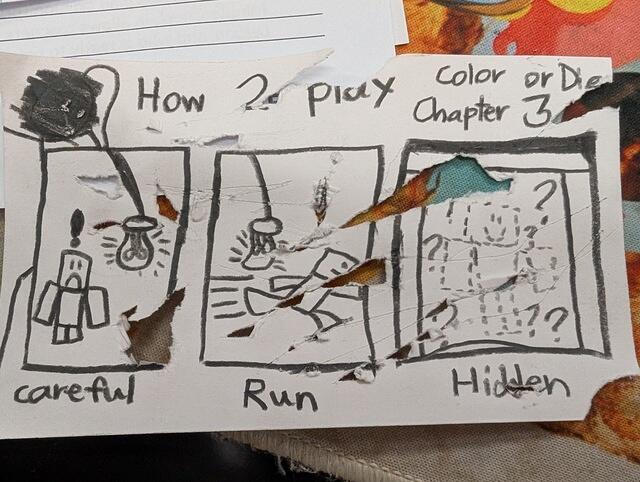 How 2 play
Color or Die
Chapter 3
!
? ? ? ? ?
careful
Run
Hidden